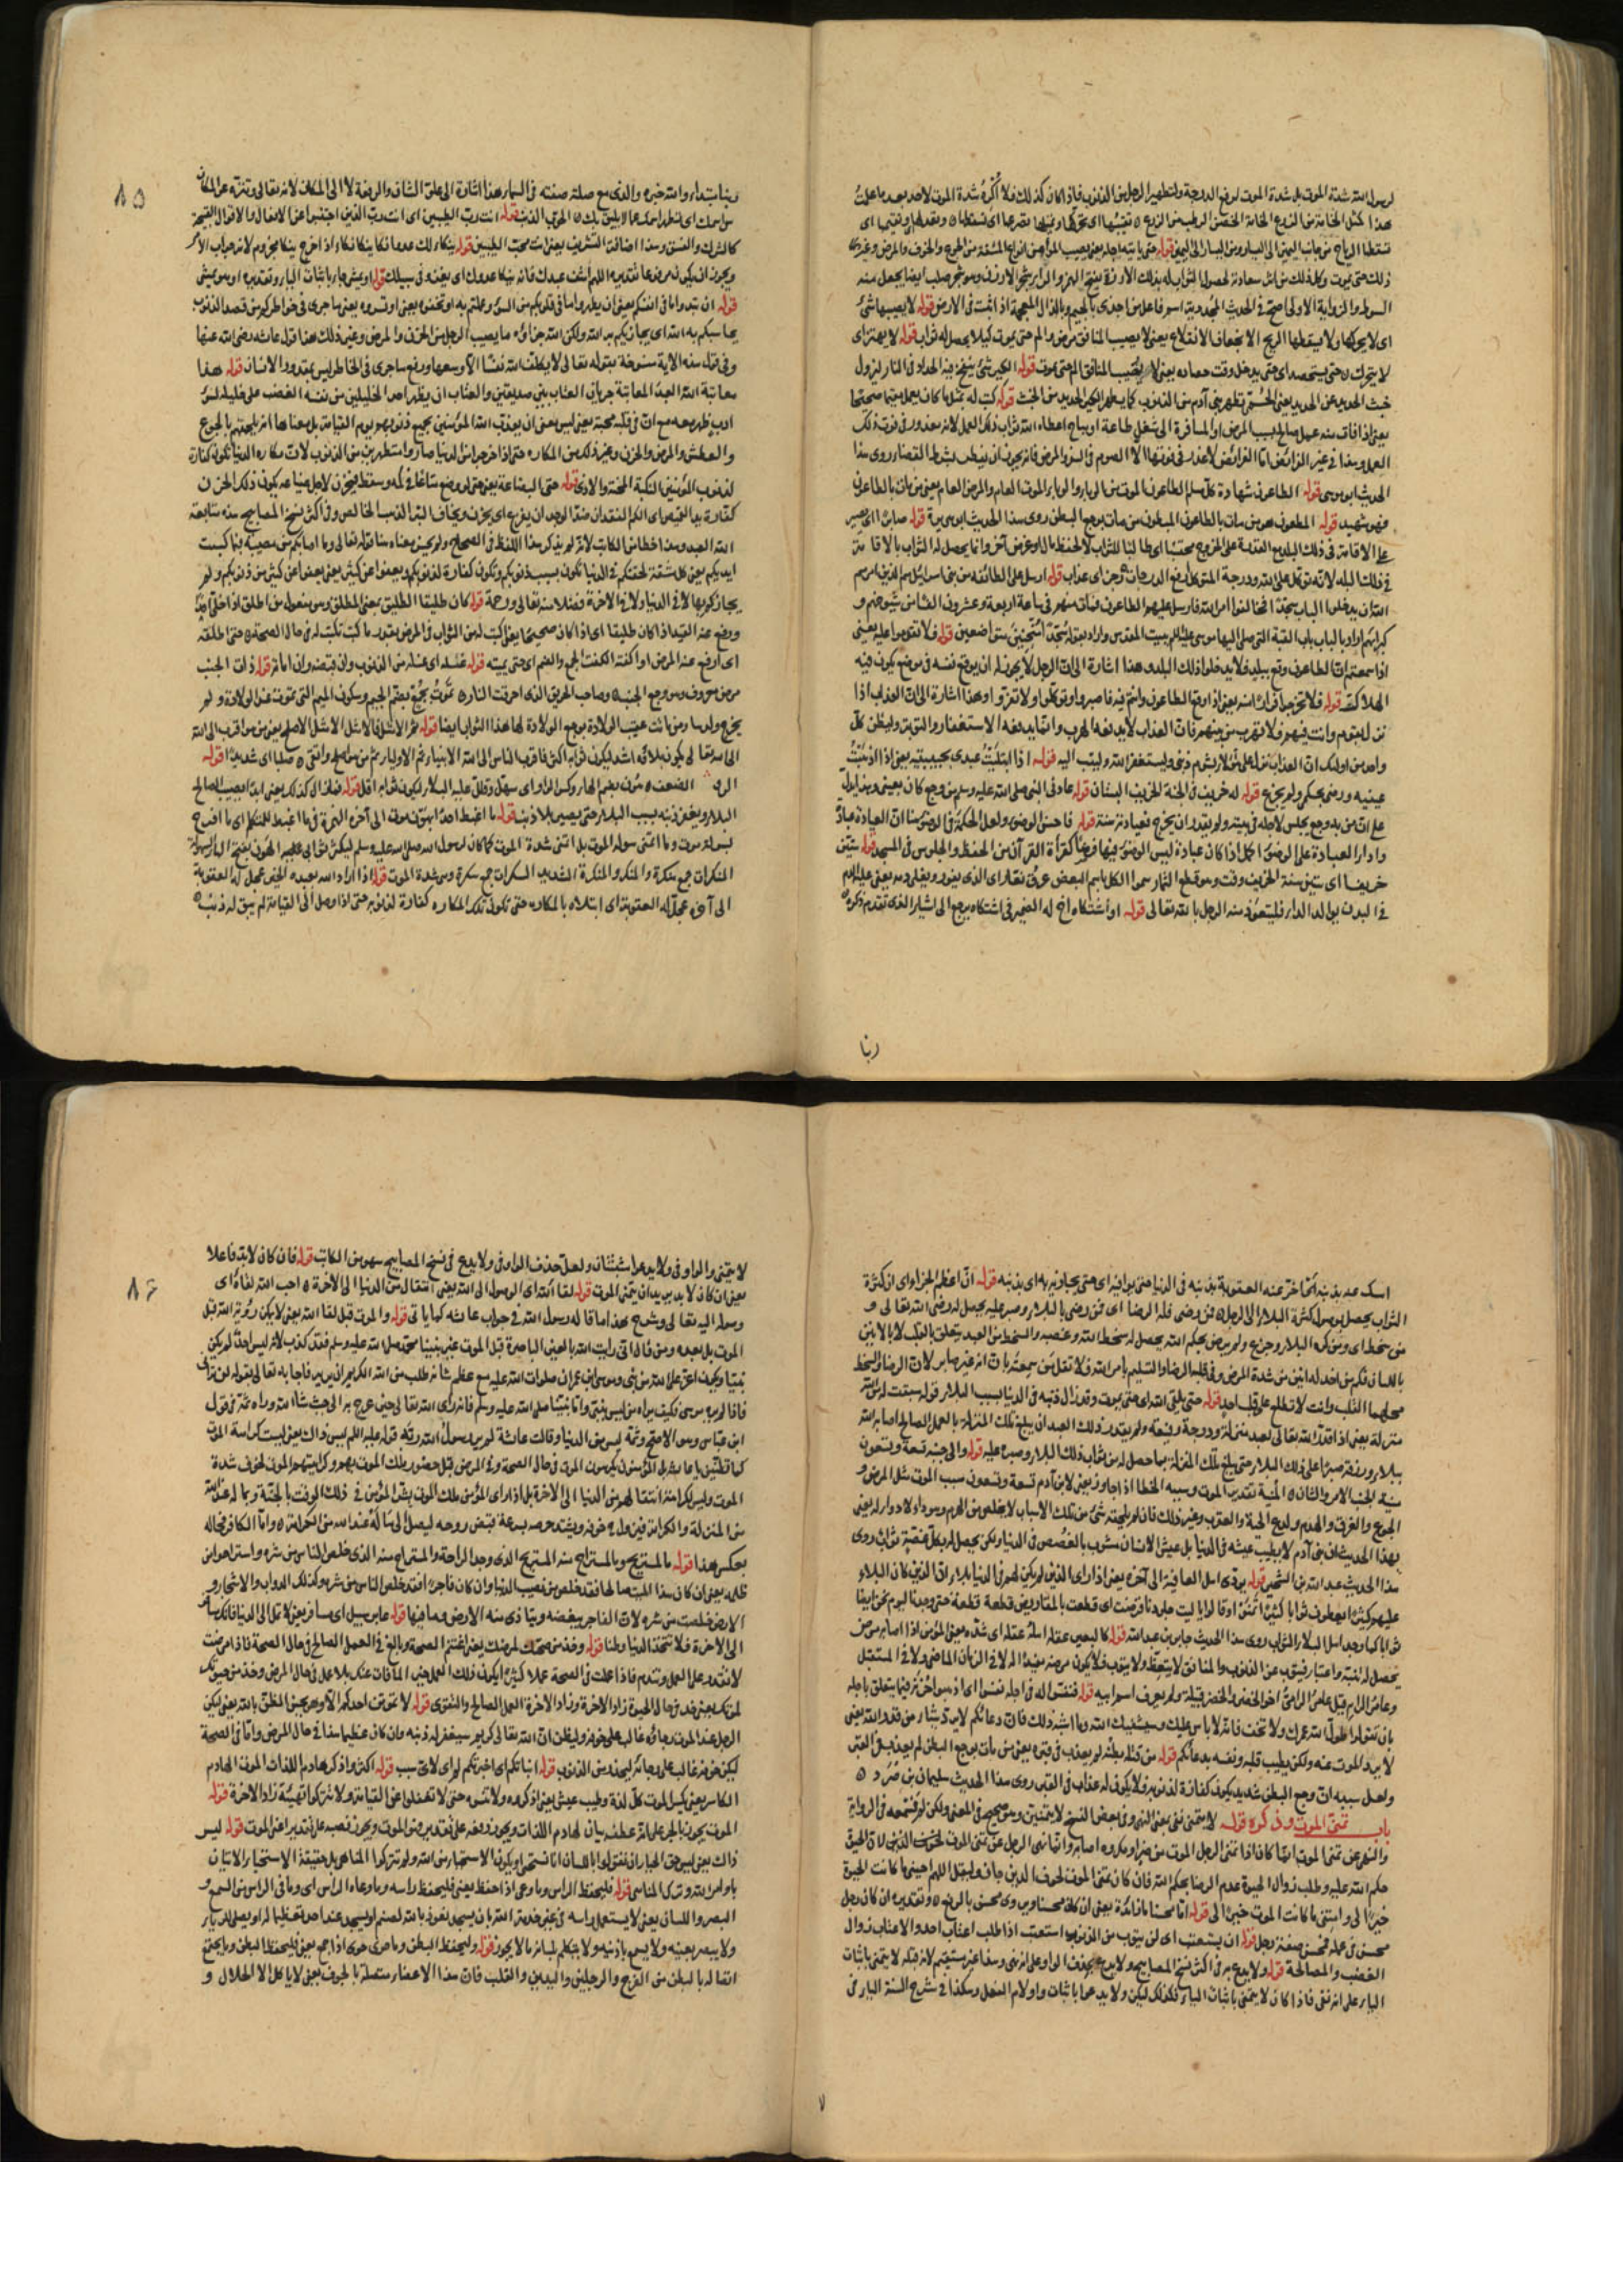 لرسول الله شدة الموت بل شدة الموت لرفع الدرجة ولتطهير الرجل من الذنوب فاذا كان كذلك فلا أكره شدة الموت لاحد بعد ما علمت
هذا كمثل الخامة من الزرع الخامة الغصن الرطب من الزرع تفيئها اى تحركها
تسقطها الرياح من جانب اليمين الى اليسار ومن اليسار الى اليمين قوله حتى ياتيه اجله يعنى يصيب المؤمن انواع المشقة من الجوع والخوف والمرض وغير
ذلك حتى يموت وكل ذلك من اثر سعادته لحصول الثواب له بذلك الارزة بفتح الهمزة والراء شجر الارزن وهو شجر صلب ايضا يجعل منه
السوط والرواية الاولى اصح فى الحديث المجذية اسم فاعل من اجذى بالجيم وبالذال المعجمة اذا ثبت فى الارض قوله لا يصيبها شئ
اى لا يحركها ولا يسقطها الريح الانجعاف الانقلاع يعنى لا يصيب المنافق مرض والم حتى يموت كيلا يحصل له ثواب قوله لا يهتز اى
لا يتحرك حتى يستحصد اى حتى يدخل وقت حصاده يعنى لا يصيب المنافق الم حتى يموت قوله الكير شئ ينفخ فيه الحداد فى النار ليزول
خبث الحديد عن الحديد يعنى الحمى تطهر بنى آدم من الذنوب كما يطهر الكير الحديد من الخبث قوله كتب له بمثل ما كان يعمل مقيما صحيحا
يعنى اذا فات منه عمل صالح بسبب المرض او المسافرة الى شغل طاعة او مباح اعطاه الله ثواب ذلك العمل لانه معذور فى فوت ذلك
العمل وهذا فى غير الفرائض اما الفرائض لا عذر فى فوتها الا الصوم فى السفر والمرض فانه يجوز ان يفطر بشرط القضاء روى هذا
الحديث ابو موسى قوله الطاعون شهادة كل مسلم الطاعون الموت من الوباء والوباء الموت العام والمرض العام يعنى من مات بالطاعون
فهو شهيد قوله المطعون هو من مات بالطاعون المبطون من مات بوجع البطن روى هذا الحديث ابو هريرة قوله صابرا اى يصبر
على الاقامة فى ذلك البلد مع القدرة على الخروج محتسبا اى طالبا للثواب لا لحفظ مال او غرض آخر وانما يحصل له الثواب بالاقامة
فى ذلك البلد لانه توكل على الله ودرجة المتوكل ارفع الدرجات رجز اى عذاب قوله ارسل على الطائفة من بنى اسرائيل هم الذين امرهم
الله ان يدخلوا الباب سجدا فخالفوا امر الله فارسل عليهم الطاعون فمات منهم فى ساعة اربعة وعشرون الفا من شيوخهم و
كبرائهم اراد بالباب باب القبة التى صلى اليها موسى عليه السلام ببيت المقدس واراد بقوله سجدا منحنين متواضعين قوله فلا تقدموا عليه يعنى
اذا سمعتم ان الطاعون وقع ببلد فلا تدخلوا ذلك البلد وهذا اشارة الى ان الرجل لا يجوز له ان يوقع نفسه فى موضع يكون فيه
الهلاك قوله فلا تخرجوا فرارا منه يعنى اذا وقع الطاعون وانتم فيه فاصبروا وتوكلوا ولا تفروا وهذا اشارة الى ان العذاب اذا
نزل بقوم وانت فيهم فلا تهرب من بينهم فان العذاب لا يدفعه الهرب وانما يدفعه الاستغفار والتوبة وليظن كل
واحد من اولئك ان العذاب نزل على الارض بشوم ذنبى وليستغفر الله وليتب اليه قوله اذا ابتليت عبدى بحبيبتيه يعنى اذا اذهبت
عينيه ورضى بحكمى ولم يجزع قوله له خريف فى الجنة الخريف البستان قوله عادنى النبى صلى الله عليه وسلم من وجع كان بعينى
على ان من به وجع يجلس لاجله فى بيته ولم يقدر ان يخرج فعيادته سنة قوله فاحسن الوضوء ولعل الحكمة فى الوضوء هنا ان العيادة عبادة
واداء العبادة على الوضوء اكمل اذا كان عبادة ليس الوضوء فيها فرضا كقراءة القرآن من الحفظ والجلوس فى المسجد قوله ستين
خريفا اى ستين سنة الخريف وقت وهو قطع الثمار سموا الكل باسم البعض عرق نعار اى الذى يفور ويغلى دمه يعنى غليان الدم
فى البدن يولد الداء فليتعوذ منه الرجل بالله تعالى قوله او اشتكاه اخ له الضمير فى اشتكاه يرجع الى اشيا الذى تقدم ذكره
ربنا
٨٥
ربنا مبتدأ والله خبره والذى مع صلته صفته فى السماء هذا اشارة الى علو الشان والرفعة لا الى المكان لانه تعالى منزه عن المكان
كالشرك والفسق وهذا اضافة التشريف يعنى انت محب الطيبين قوله ينكأ لك عدوا نكأ ينكأ نكاء اذا جرح ينكا مجزوم لانه جواب الامر
ويجوز ان يكون مرفوعا تقديره اللهم اشف عبدك فانه ينكا عدوك اى يغزو فى سبيلك قوله او يمشى جاء باثبات الياء وتقديره او هو يمشى
قوله ان تبدوا ما فى انفسكم يعنى ان يظهروا ما فى قلوبكم من السوء وعملتم به او تخفوه يعنى او تسروه يعنى ما جرى فى خواطركم من قصد الذنوب
يحاسبكم به الله اى يجازيكم به الله ولكن الله جزاؤه ما يصيب الرجل من الخوف والمرض وغير ذلك هذا قول عائشة رضى الله عنها
وفى قول هذه الاية منسوخة بقوله تعالى لا يكلف الله نفسا الا وسعها ورفع ما جرى فى الخاطر ليس بمقدور الانسان قوله هذا
معاتبة الله العبد المعاتبة جريان العتاب بين صديقين والعتاب ان يظهر احد الخليلين من نفسه الغضب على خليله لسوء
ادب ظهر منه مع ان فى قلبه محبته يعنى ليس معنى ان يعذب الله المؤمنين بجميع ذنوبهم يوم القيامة بل معناها انه يلحقهم بالجوع
والعطش والمرض والحزن وغير ذلك من المكاره حتى اذا خرجوا من الدنيا صاروا مطهرين من الذنوب لان مكاره الدنيا تكون كفارة
لذنوب المؤمنين النكبة المحنة والاذى قوله حتى البضاعة يعنى حتى لو وضع متاعا فى كمه وسقط فيحزن لاجل ضياعه يكون ذلك الحزن
الله العبد وهذا خطا من الكاتب لانه لم يذكر هذا اللفظ فى الصحاح ولم يحسن معناه هنا قوله تعالى وما اصابكم من مصيبة بما كسبت
ايديكم يعنى كل مشقة لحقتكم فى الدنيا تكون بسبب ذنوبكم وتكون كفارة لذنوبكم ويعفوا عن كثير يعنى يعفو عن كثير من ذنوبكم ولم
يجازكم بها لا فى الدنيا ولا فى الاخرة فضلا منه تعالى ورحمة قوله كان طليقا الطليق بمعنى المطلق وهو مفعول من اطلق اذا خلى
ورفع عنه القيد اذا كان طليقا اى اذا كان صحيحا يعنى كتب له من الثواب فى المرض بقدر ما كتب له فى حال الصحة حتى اطلقه
اى ارفع عنه المرض او اكفته الكفت الجمع والضم اى حتى يميته قوله غسله اى غسله من الذنوب وان قبضه وان اماته قوله ذات الجنب
مرض معروف وهو وجع الجنب وصاحب الحريق الذى احرقته النار تموت بجمع بضم الجيم وسكون الميم التى تموت عند الولادة ولم
يخرج ولدها ومن ماتت عقيب الولادة بوجع الولادة لها هذا الثواب ايضا قوله ثم الامثل فالامثل الامثل الاصلح يعنى من هو اقرب الى الله
الى الله تعالى يكون بلاؤه اشد ليكون ثوابه اكثر فاقرب الناس الى الله الانبياء ثم الاولياء ثم من هو اصلح واتقى صلبا اى شديدا قوله
الضعف هون بضم الهاء وكسر الواو اى سهل وقلل عليه البلاء ليكون ثوابه اقل قوله فما زال كذلك يعنى ابدا يصيب الصالح
البلاء ويغفر ذنبه بسبب البلاء حتى يصير بلا ذنب قوله ما اغبط احدا بهون موت الى آخره الهمزة فى ما اغبط للمتكلم اى ما افرح
بسهولة موت وما اتمنى سهولة الموت بل اتمنى شدة الموت كما كان لرسول الله صلى الله عليه وسلم ليكثر ثوابى عليه الهون بفتح الهاء السهولة
المنكرات جمع منكرة والمنكر والمنكرة الشديد السكرات جمع سكرة وهى شدة الموت قوله اذا اراد الله بعبده الخير عجل له العقوبة
الى آخره عجل له العقوبة اى ابتلاه بالمكاره حتى تكون تلك المكاره كفارة لذنوبه حتى اذا وصل الى القيامة لم يبق له ذنب
امسك عنه بذنبه اى تأخر عنه العقوبة بذنبه فى الدنيا حتى يوافيه اى حتى يجازيه به اى بذنبه قوله ان عظم الجزاء اى ان كثرة
الثواب يحصل بوصول كثرة البلاء الى الرجل فمن رضى فله الرضا اى فمن رضى بالبلاء وصبر عليه يحصل له رضى الله تعالى و
من سخط اى ومن كره البلاء وجزع ولم يرض بحكم الله يحصل له سخط الله وغضبه والسخط من العبد يتعلق بالقلب لا بالانين
باللسان فكم من احد له انين من شدة المرض وفى قلبه الرضا والتسليم بامر الله فلا تقل لمن سمعته بان انه غير صابر لان الرضا والسخط
محلهما القلب وانت لا تطلع على قلب احد قوله حتى يلقى الله اى حتى يموت وقد زال ذنبه فى الدنيا بسبب البلاء قوله سبقت له من الله
منزلة يعنى اذا قدر الله تعالى لعبد منزلة ودرجة رفيعة ولم يقدر ذلك العبد ان يبلغ تلك المنزلة بالعمل الصالح اصابه الله
ببلاء ورزقه صبرا على ذلك البلاء حتى يبلغ تلك المنزلة بما حصل له من ثواب ذلك البلاء وصبره عليه قوله والى جنبه تسعة وتسعون
الجوع والغرق والهدم ولدغ الحية والعقرب وغير ذلك فان لم يلحقه شئ من تلك الاسباب لا يخلص من الهرم وهو داء لا دواء له يعنى
بهذا الحديث ان بنى آدم لا يطيب عيشه فى الدنيا بل عيش الانسان مشوب بالغصص فى الدنيا ولكن يحصل له بكل غصة ثواب روى
هذا الحديث عبد الله بن الشخير قوله يود اهل العافية الى آخره يعنى اذا راى الذين لم يكن لهم فى الدنيا بلاء ان الذين كان البلاء
عليهم كثيرا يعطون ثوابا كثيرا تمنوا وقالوا يا ليت جلودنا قرضت اى قطعت بالمقاريض قطعة قطعة حتى وجدنا اليوم نحن ايضا
ثوابا كما وجد اهل البلاء الثواب روى هذا الحديث جابر بن عبد الله قوله كالبعير عقله اهله عقله اى شده يعنى المؤمن اذا اصابه مرض
يحصل له تنبه واعتبار فيتوب عن الذنوب والمنافق لا يتعظ ولا يتوب فلا يكون مرضه مفيدا له لا فى الزمان الماضى ولا فى المستقبل
وعامر الرام قيل عامر الرامى اخو الخضر والخضر قبيلة ولم يعرف اسم ابيه قوله فنفسوا له فى اجله نفسوا اى اذهبوا حزنه فيما يتعلق باجله
بان تقولوا طول الله عمرك ولا تخف فانه لا باس عليك وسيشفيك الله وما اشبه ذلك فان دعائكم لا يرد شيئا من قدر الله يعنى
لا يرد الموت عنه ولكن يطيب قلبه ونفسه بدعائكم قوله من قتله بطنه لم يعذب فى قبره يعنى من مات بوجع البطن لم يعذب فى القبر
ولعل سببه ان وجع البطن شديد يكون كفارة لذنوبه فلا يكون له عذاب فى القبر روى هذا الحديث سليمان بن صرد
باب تمنى الموت وذكره قوله لا يتمنى نفى بمعنى النهى وفى بعض النسخ لا يتمنين وهو صحيح فى المعنى ولكن لم نسمعه فى الرواية
والنهى عن تمنى الموت انما كان اذا تمنى الرجل الموت من ضر او مكروه اصابه وانما نهى الرجل عن تمنى الموت لخوف الذين لان الحيوة
حكم الله عليه وطلب زوال الحيوة عدم الرضا بحكم الله فان كان تمنى الموت لخوف الدين جاز وليقل اللهم احينى ما كانت الحيوة
خيرا لى وامتنى ما كانت الموت خيرا لى قوله اما محسنا ما زائدة يعنى ان كان محسنا ويروى محسن بالرفع وتقديره ان كان رجل
محسن فى عمله فمحسن صفة رجل قوله ان يستعتب اى لعل يتوب من الذنوب استعتب اذا طلب اعتاب احد والاعتاب زوال
الغضب والمصالحة قوله ولا يدع به فى اكثر نسخ المصابيح ولا يدع بحذف الواو على انه نهى وهذا غير مستقيم لان قبله لا يتمنى باثبات
الياء على انه نفى فاذا كان لا يتمنى باثبات الياء فكذلك ليكن ولا يدعوا باثبات واو لام الفعل وهكذا فى شرح السنة الياء فى
٨٦
لا يتمنى والواو فى ولا يدعوا مثبتتان ولعل حذف الواو فى ولا يدع فى نسخ المصابيح سهو من الكاتب قوله فان كان لابد فاعلا
يعنى ان كان لا بد يريد ان يتمنى الموت قوله لقاء الله اى الوصول الى الله يعنى انتقال من الدنيا الى الاخرة احب الله لقاءه اى
وصوله اليه تعالى وشرح هذا ما قاله رسول الله فى جواب عائشة كما ياتى قوله والموت قبل لقاء الله يعنى لا يكن رؤية الله قبل
الموت بل بعده ومن قال انى رايت الله بالعين الباصرة قبل الموت غير نبينا محمد صلى الله عليه وسلم فقد كذب لانه ليس احد لم يكن
نبيا ويكون اعز على الله من نبى وموسى ابن عمران صلوات الله عليه مع عظم شانه طلب من الله الكريم ان يريه فاجابه تعالى بقوله لن ترانى
فاذا لم يره موسى فكيف يراه من ليس بنبى واما نبينا صلى الله عليه وسلم فانه راى الله تعالى حين عرج به الى حيث شاء الله وراه ثمة فى قول
ابن عباس وهو الاصح وثمة ليس من الدنيا وقالت عائشة لم ير رسول الله ربه قوله عليه السلام ليس ذاك يعنى ليست كراهة الموت
كما تظنين يا عائشة بل المؤمنون يكرهون الموت فى حال الصحة وفى المرض قبل حضور ملك الموت بهم وكراهيتهم الموت لخوف شدة
الموت وليس لكراهة انتقالهم من الدنيا الى الاخرة بل اذا راى المؤمن ملك الموت يبشر المؤمن فى ذلك الوقت بالجنة وبما له عند الله
من المنزلة والكرامة فيزول خوفه ويشتد حرصه بسرعة قبض روحه ليصل الى ما له عند الله من الكرامة واما الكافر فحاله
بعكس هذا قوله المستريح والمستراح منه المستريح الذى وجد الراحة والمستراح منه الذى خلص الناس من شره واستراحوا من
ظلمه يعنى ان كان هذا الميت صالحا فقد خلص من نصب الدنيا وان كان فاجرا فقد خلص الناس من شره وكذلك الدواب والاشجار و
الارض خلصت من شره لان الفاجر يبغضه ويتاذى منه الارض وما فيها قوله عابر سبيل اى مسافر يعنى لا تمل الى الدنيا فانك مسافر
الى الاخرة فلا تتخذ الدنيا وطنا قوله وخذ من صحتك لمرضك يعنى اغتنم الصحة وبالغ فى العمل الصالح فى حال الصحة فاذا مرضت
لا تقدر على العمل وتندم فاذا عملت فى الصحة عملا كثيرا يكون ذلك العمل جبر المافات عنك بلا عمل فى حال المرض وخذ من حيوتك
لموتك يعنى خذ فى حال الحيوة زاد الاخرة وزاد الاخرة العمل الصالح والتقوى قوله لا يموتن احدكم الا وهو يحسن الظن بالله يعنى ليكن
الرجل عند الموت رجاؤه غالبا على خوفه وليظن ان الله تعالى كريم سيغفر له ذنبه وان كان عظيما هذا فى حال المرض واما فى الصحة
ليكن خوفه غالبا على رجائه ليحذر من الذنوب قوله انبأتكم اى اخبرتكم لم اى لاى سبب قوله اكثروا ذكر هادم اللذات الموت الهادم
الكاسر يعنى يكسر الموت كل لذة وطيب عيش يعنى اذكروه ولا تنسوه حتى لا تغفلوا عن القيامة ولا تتركوا تهيئة زاد الاخرة قوله
الموت يجوز بالجر على انه عطف بيان لهادم اللذات ويجوز رفعه على تقدير هو الموت ويجوز نصبه على تقدير اعنى الموت قوله ليس
ذاك يعنى ليس حق الحياء ان تقولوا باللسان انا نستحيى ويكون الاستحياء من الله ولم تتركوا المناهى بل حقيقة الاستحياء الاتيان
باوامر الله وترك المناهى قوله فليحفظ الراس وما وعى اذا حفظ يعنى فليحفظ راسه وما وعاه الراس اى وما فى الراس من السمع و
البصر واللسان يعنى لا يستعمل راسه فى غير خدمة الله بان يسجد نعوذ بالله لصنم او يسجد عند احد تعظيما له او يصلى لرياء
ولا يبصر بعينه ولا يسمع باذنيه ولا يتكلم بلسانه ما لا يجوز قوله وليحفظ البطن وما حوى حوى اذا جمع يعنى فليحفظ البطن وما يجتمع
اتصاله بالبطن من الفرج والرجلين واليدين والقلب فان هذا الاعضاء متصلة بالجوف يعنى لا ياكل الا الحلال و